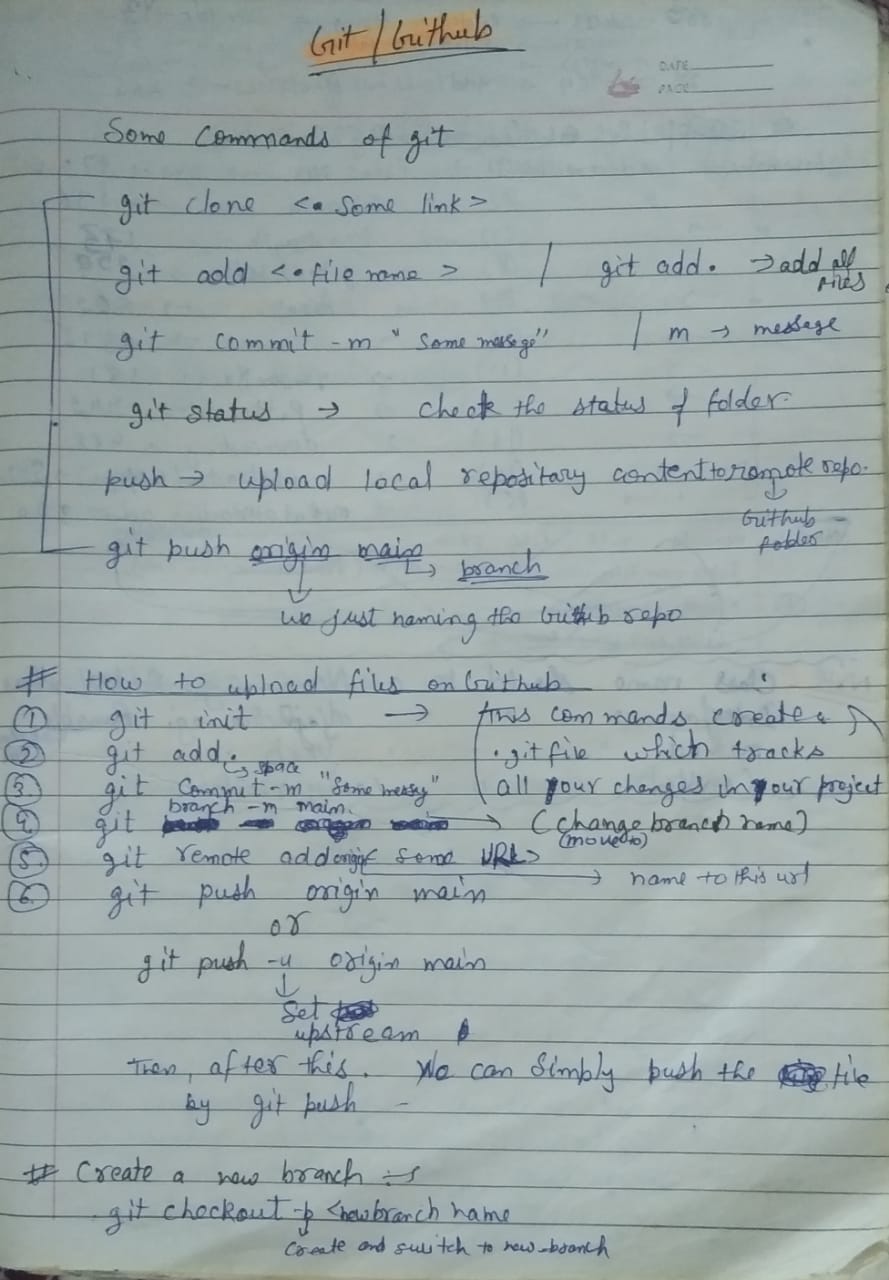 Git / Github
DATE
PAGE
Some Commands of git
git clone <• Some link>
git add <• file name > / git add . → add all files
git commit -m "Some messege" / m → message
git status → check the status of folder.
push → upload local repositary content to remote repo.
↓
Github folder
git push origin main
↳ branch
↓
we just naming the Github repo
# How to upload files on Github
① git init → this commands create a
② git add . .git file which tracks
↳ space
③ git commit -m "Some messg" all your changes in your project
④ git branch -m main. → (change branch name)
(moveto)
⑤ git remote add origin < some URL>
→ name to this url
⑥ git push origin main
or
git push -u origin main
↓
Set
upstream
Then, after this. We can Simply push the file
by git push -
# Create a new branch :-
git checkout -b <newbranch name
Create and switch to new-branch